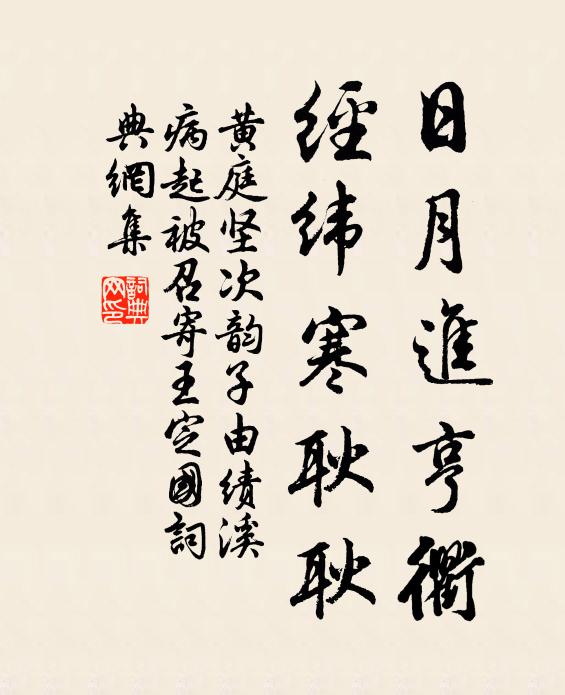 日月進亨衢
經緯寒耿耿
黄庭坚次韵子由绩溪
病起被召寄王定國詞
典網集
詞典网印